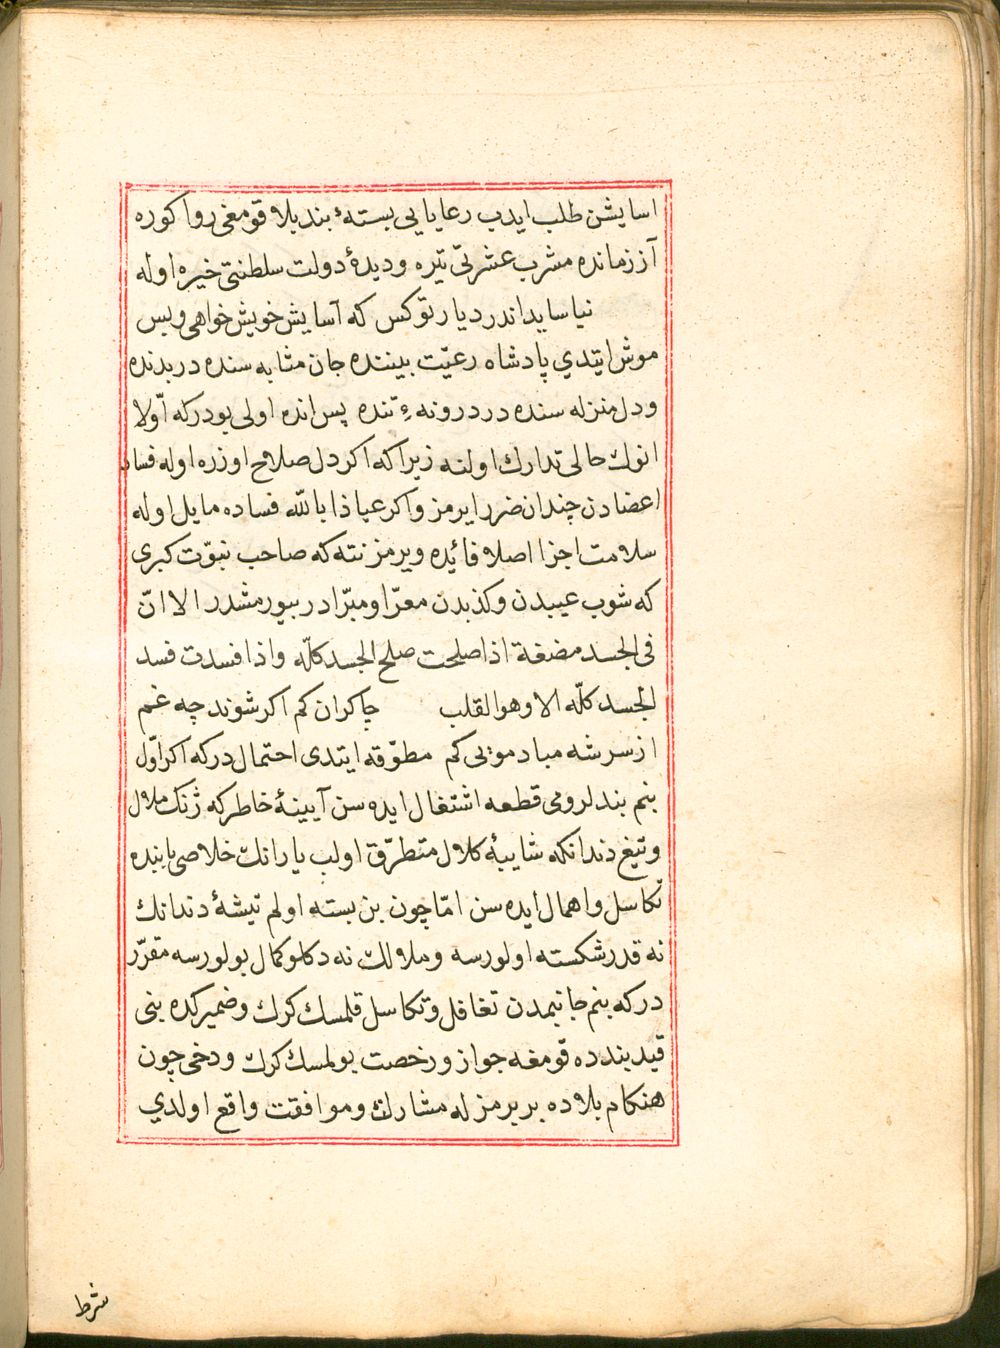 اسايشن طلب ايدب رعايايى بستهٔ بند بلا قومغى روا كوره
آز زمانده مشرب عشرتى تيره و ديدهٔ دولت سلطنتى خيره اوله
نياسايد اندر ديار تو كس كه آسايش خويش خواهى و بس
موش ايتدي پادشاه رعيّت بيننده جان مثابه سنده در بدنده
و دل منزله سنده در درونهٔ تنده پس انده اولى بودركه اوّلا
انوڭ حالى تدارك اولنه زيراكه اكر دل صلاح اوزره اوله فساد
اعضادن چندان ضرر ايرمز و اكر عياذا بالله فساده مايل اوله
سلامت اجزا اصلا فائده ويرمز نته كه صاحب نبوّت كبرى
كه شوب عيبدن و كذبدن معرّا و مبرّادر بيورمشدر الا انّ
فى الجسد مضغة اذا صلحت صلح الجسد كلّه و اذا فسدت فسد
الجسد كلّه الا وهو القلب چاكران كم اكر شوند چه غم
از سر شه مباد مويى كم مطوّقه ايتدى احتمال دركه اكر اوّل
بنم بندلرومى قطعه اشتغال ايده سن آيينهٔ خاطركه ژنك ملال
و تيغ دندانكه شايبهٔ كلال متطرّق اولب يارانك خلاصى بابنده
تكاسل و اهمال ايده سن امّا چون بن بسته اولم تيشهٔ دندانك
نه قدر شكسته اولورسه و ملالڭ نه دكلو كمال بولورسه مقرّر
دركه بنم جانبمدن تغافل و تكاسل قلمسك كرك و ضميركده بنى
قيد بندده قومغه جواز و رخصت بولمسك كرك و دخى چون
هنكام بلاده بربرمز له مشارك و موافقت واقع اولدي
شرط